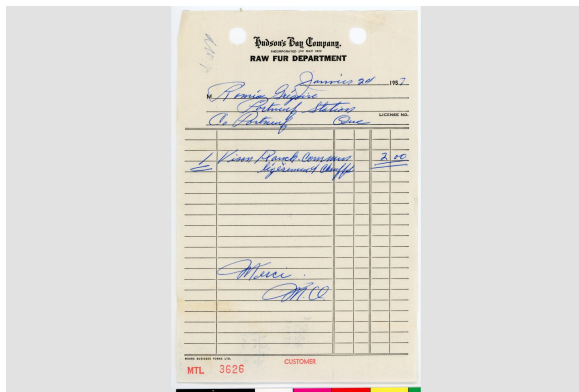 Hudson's Bay Company.
INCORPORATED 2ND MAY 1670
RAW FUR DEPARTMENT
Janvier 2d 1957
M Roméo Grégoire
Portneuf Station
Co Portneuf Que
LICENSE NO.
1 Vison Ranch. Commun 2 00
légèrement chauffé
Merci
M.O.
MOORE BUSINESS FORMS LTD.
CUSTOMER
MTL 3626